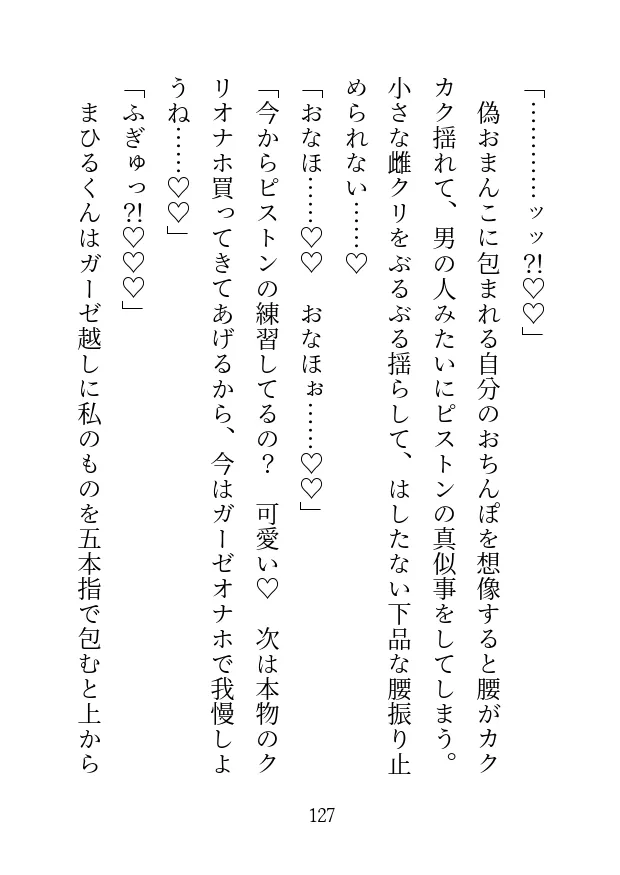 「…………ッッ?!♡♡」
　偽おまんこに包まれる自分のおちんぽを想像すると腰がカク
カク揺れて、男の人みたいにピストンの真似事をしてしまう。
小さな雌クリをぶるぶる揺らして、はしたない下品な腰振り止
められない……♡
「おなほ……♡♡　おなほぉ……♡♡」
「今からピストンの練習してるの？　可愛い♡　次は本物のク
リオナホ買ってきてあげるから、今はガーゼオナホで我慢しよ
うね……♡♡」
「ふぎゅっ?!♡♡♡」
　まひるくんはガーゼ越しに私のものを五本指で包むと上から
127